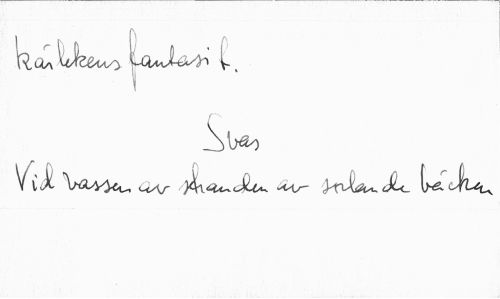 Kärlekens fantasi f.
Svas
Vid vassen av stranden av sorlande bäcken